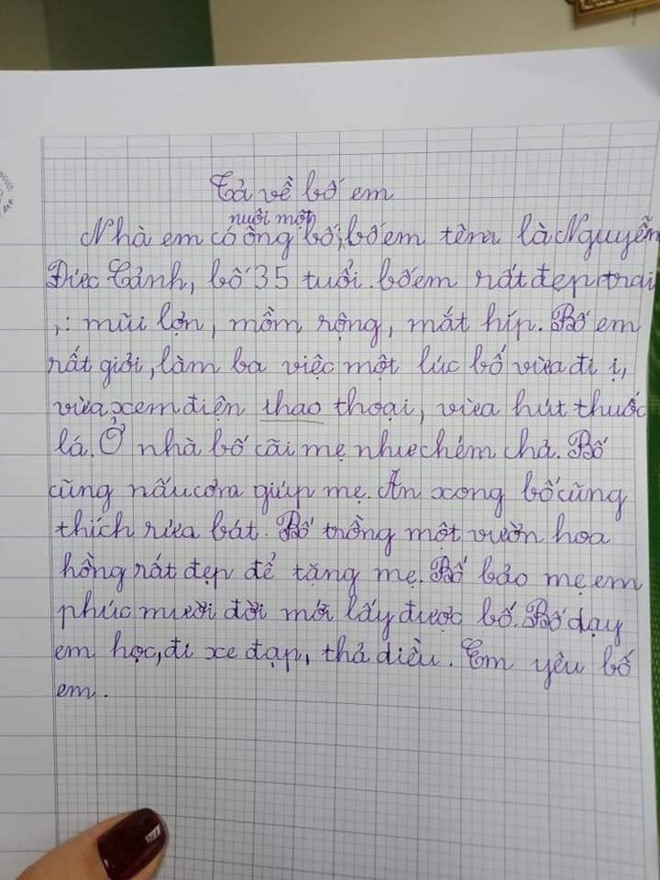 Tả về bố em
nuôi một
Nhà em có ông bố, bố em tên là Nguyễn
Đức Cảnh, bố 35 tuổi. bố em rất đẹp trai
,: mũi lợn, mồm rộng, mắt híp. Bố em
rất giỏi, làm ba việc một lúc bố vừa đi ị,
vừa xem điện thao thoại, vừa hút thuốc
lá. Ở nhà bố cãi mẹ như chém chả. Bố
cũng nấu cơm giúp mẹ. Ăn xong bố cũng
thích rửa bát. Bố trồng một vườn hoa
hồng rát đẹp để tặng mẹ. Bố bảo mẹ em
phúc mười đời mới lấy được bố. Bố dạy
em học, đi xe đạp, thả diều. Em yêu bố
em.